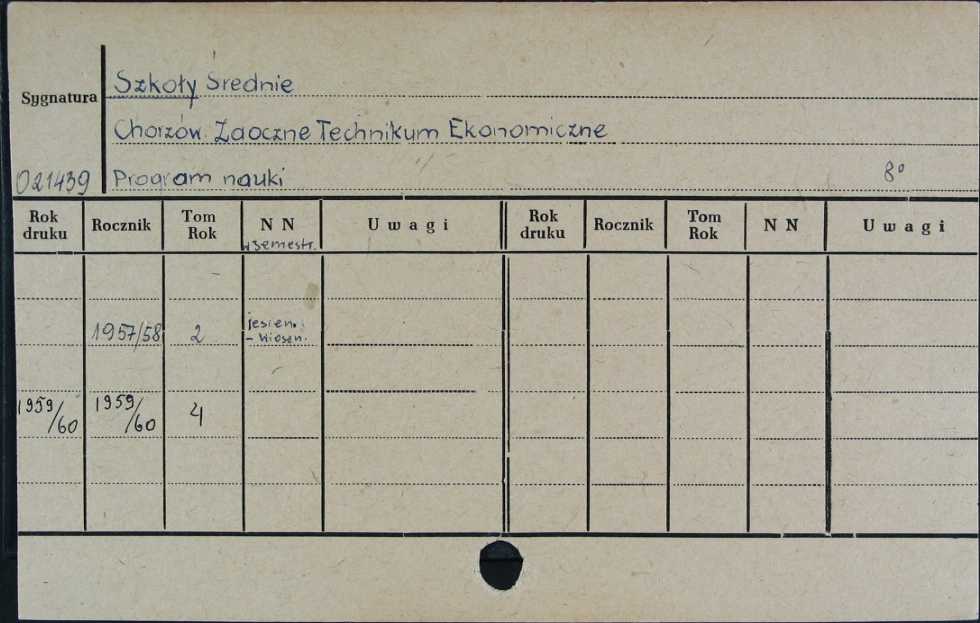 Szkoły Średnie
Sygnatura
Chorzów. Zaoczne Technikum Ekonomiczne
021439 Program nauki 8°
Rok druku Rocznik Tom Rok N N w semestr. Uwagi Rok druku Rocznik Tom Rok N N Uwagi
1957/58 2 jesien.
- wiosen.
1959/60 1959/60 4